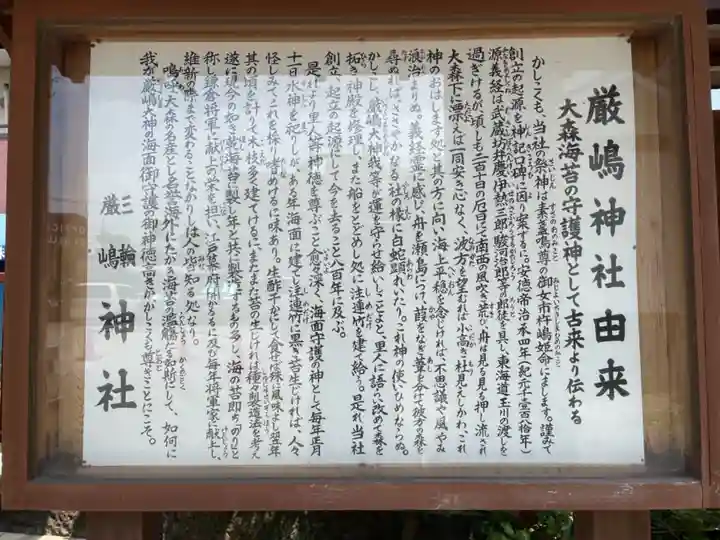 厳嶋神社由来
大森海苔の守護神として古来より伝わる
かしこくも、当社の祭神は素盞鳴尊の御女市杵嶋姫命にまします。謹みて
創立の起源を神記口碑に因り案ずるに、安徳帝治承四年(紀元千壹百八拾年)
源義経は武蔵坊弁慶伊勢三郎駿河治郎等郎徒を具し、東海道玉川の渡しを
過ぎけるが、頃しも二百十日の厄日にて南西の風吹き荒び、舟は見る見る押し流され
大森下に漂えば一同安き心なく、波方を望むれば小高き杜見えしかわ、これ
神のおはします処と其の方に向い海上平穏を念じければ、不思議や風やみ
浪治まりぬ。義経霊に感じ、舟を瀬島につけ、葭をなぎ葦を分けて彼方の森を
尋ぬれば、ささやかなる社の椽に白蛇顕れいたり、これ神の使いひめならぬ。
かしこし、厳嶋大神我等の運を守らせ給いしことよと、里人に語らい改めて森を
拓き神殿を修理し、また船をとどめし処に注連竹を建て給う。是れ当社
創立、起立の起源にして今を去ること八百年に及ぶ。
是れより里人等神徳を尊ぶこと愈々深く、海面守護の神として毎年正月
十一日水神を祀りしが、ある年海面に建てし注連竹に黒き苔生じければ、人々
怪しみてこれを採り嘗めけるに味あり。生酢干などして食せば殊に風味よし。翌年
其の頃を計りて木枝多く建てけるに、またまた苔の生じければ種々製造法を考え
遂に現今の如き乾海苔に製し年と共に製造するもの多し、海の苔即ちのりと
称し鎌倉将軍へ献上の栄を担い、江戸幕府に係わるに及び毎年将軍家に献上し、
維新の際まで変わることなかりしは人の皆知る処なり。
鳴呼、大森の名産とし名誉海外にたかき海苔の濫觴たる如斯にして、如何に
我が厳嶋大神の海面御守護の御神徳高きがかしこくも尊きことにこそ。
三輪
厳嶋
神社